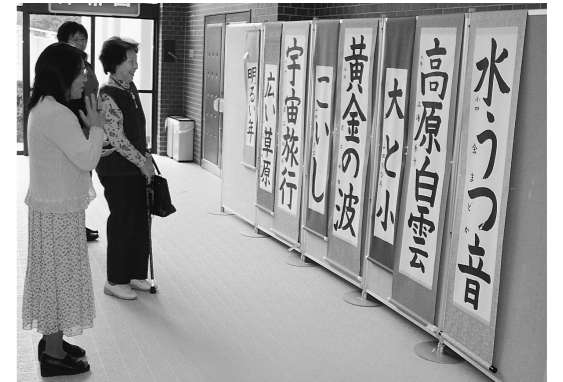 水うつ音
高原白雲
大と小
黄金の波
こいし
宇宙旅行
広い草原
明るい年